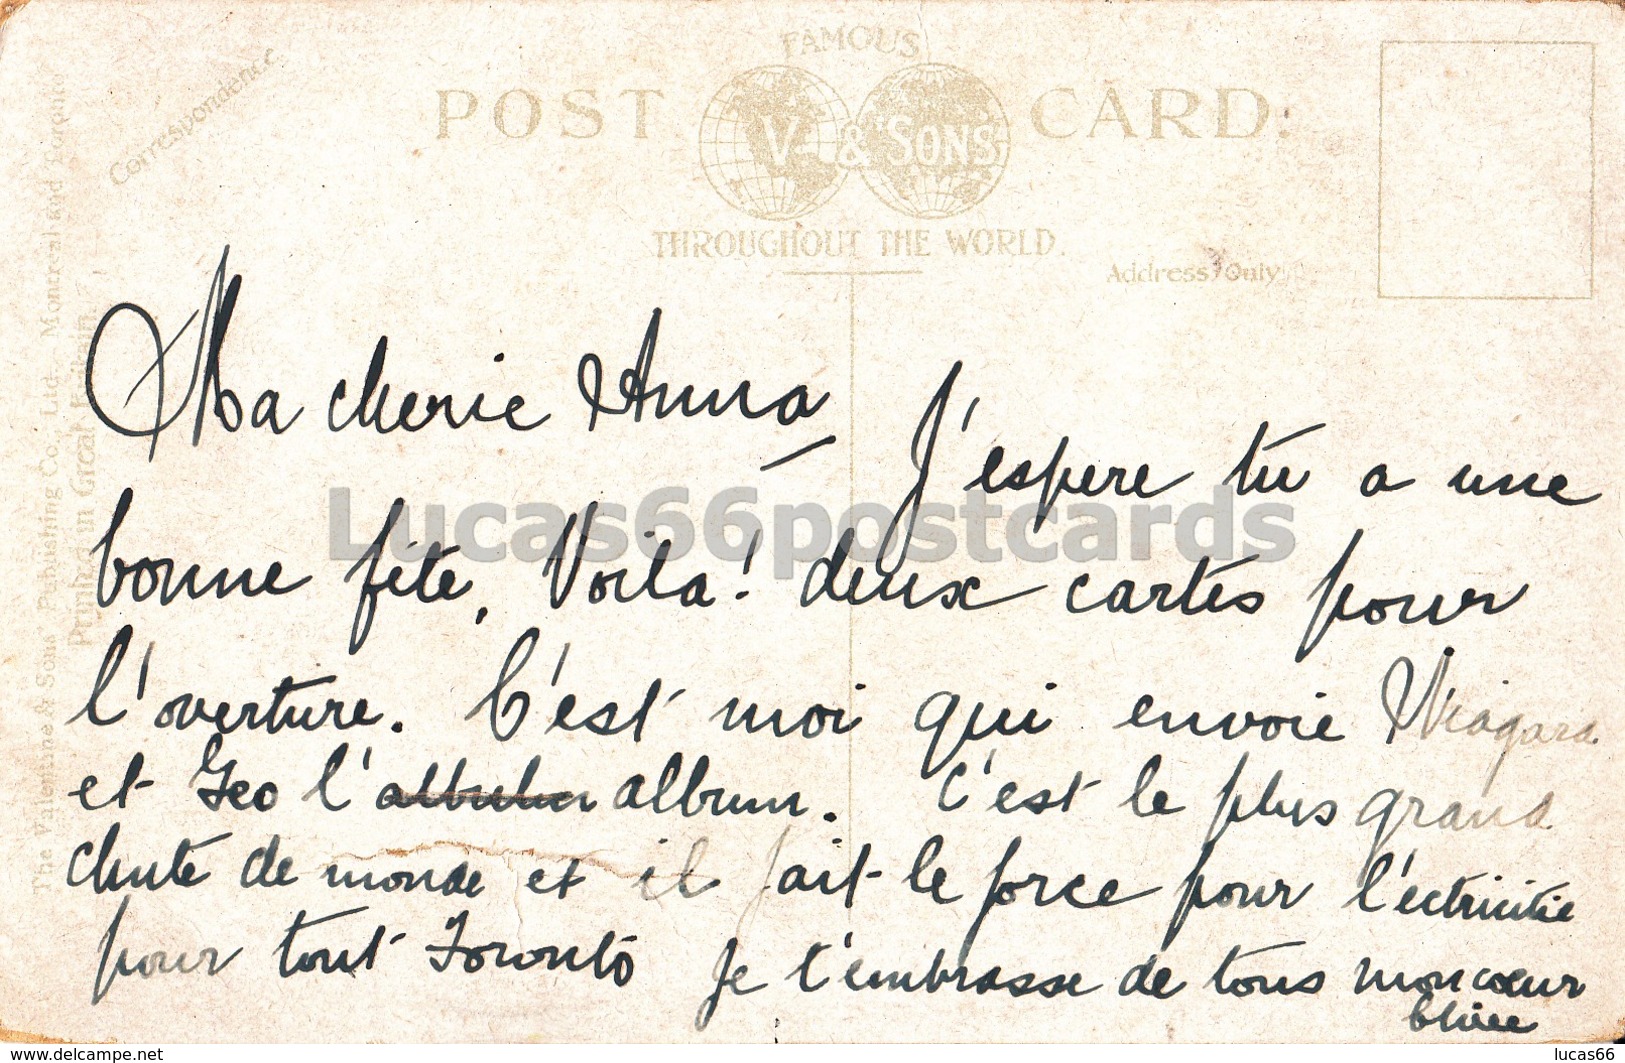 FAMOUS
POST CARD.
V. & SONS
THROUGHOUT THE WORLD.
Correspondence
Address Only
The Valentine & Sons' Publishing Co., Ltd., Montreal and Toronto
Printed in Great Britain
Ma cherie Anna
J'espere tu a une
bonne fête, Voila! deux cartes pour
l'overture. C'est moi qui envoie Niagara
et Geo l' album. C'est le plus grand
chute de monde et il fait le force pour l'ectricitie
pour tout Toronto Je t'embrasse de tous mon cœur
Lucas66postcards
www.delcampe.net
lucas66